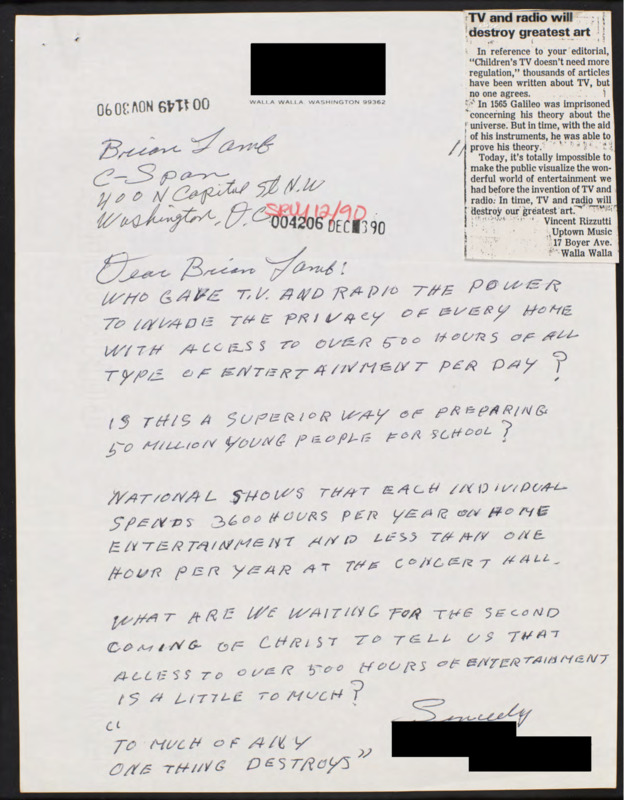 TV and radio will
destroy greatest art
In reference to your editorial,
"Children's TV doesn't need more
regulation," thousands of articles
have been written about TV, but
no one agrees.
In 1565 Galileo was imprisoned
concerning his theory about the
universe. But in time, with the aid
of his instruments, he was able to
prove his theory.
Today, it's totally impossible to
make the public visualize the won-
derful world of entertainment we
had before the invention of TV and
radio. In time, TV and radio will
destroy our greatest art.
Vincent Rizzutti
Uptown Music
17 Boyer Ave.
Walla Walla
WALLA WALLA, WASHINGTON 99362
00 1149 NOV 30 90
Brian Lamb
C-Span
400 N Capital St N.W
Washington, D.C
12/90
004206 DEC 3 90
Dear Brian Lamb:
WHO GAVE T.V. AND RADIO THE POWER
TO INVADE THE PRIVACY OF EVERY HOME
WITH ACCESS TO OVER 500 HOURS OF ALL
TYPE OF ENTERTAINMENT PER DAY?
IS THIS A SUPERIOR WAY OF PREPARING
50 MILLION YOUNG PEOPLE FOR SCHOOL?
NATIONAL SHOWS THAT EACH INDIVIDUAL
SPENDS 3600 HOURS PER YEAR ON HOME
ENTERTAINMENT AND LESS THAN ONE
HOUR PER YEAR AT THE CONCERT HALL.
WHAT ARE WE WAITING FOR THE SECOND
COMING OF CHRIST TO TELL US THAT
ACCESS TO OVER 500 HOURS OF ENTERTAINMENT
IS A LITTLE TO MUCH?
Sincerely
"
TO MUCH OF ANY
ONE THING DESTROYS"